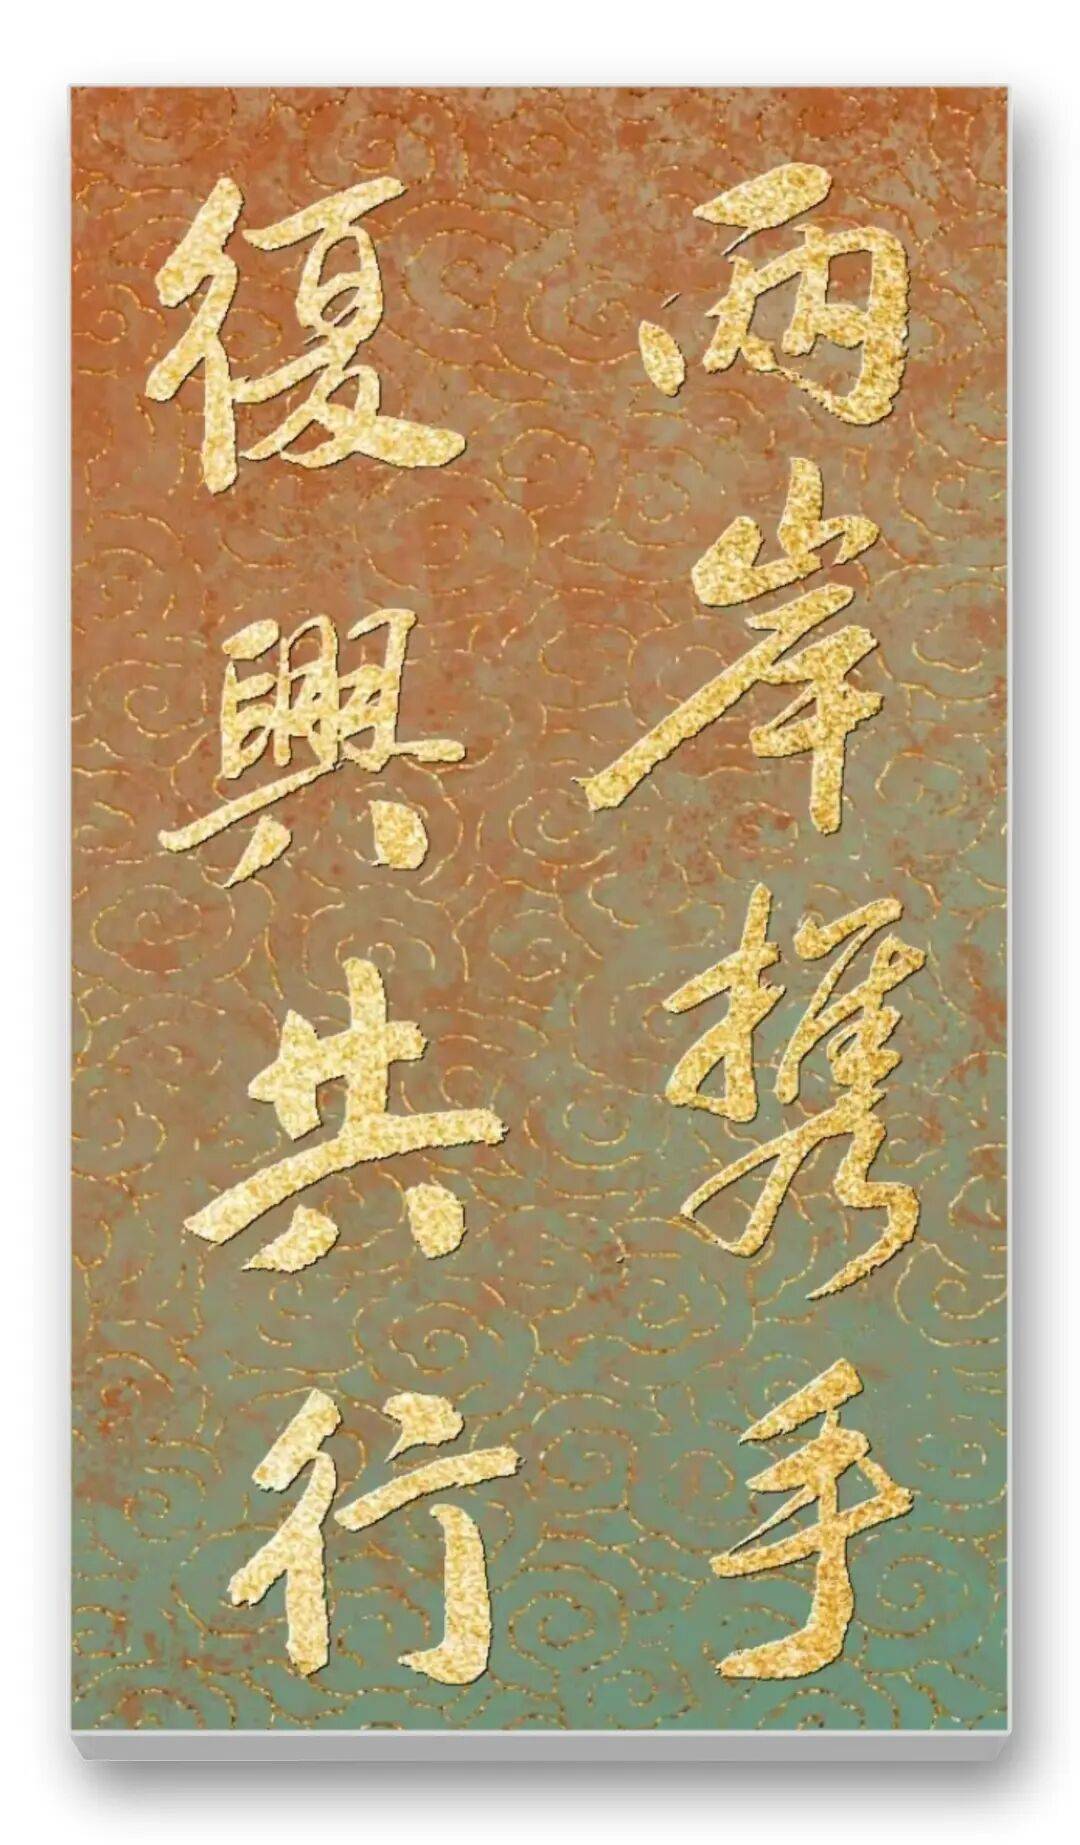 兩岸攜手
復興共行